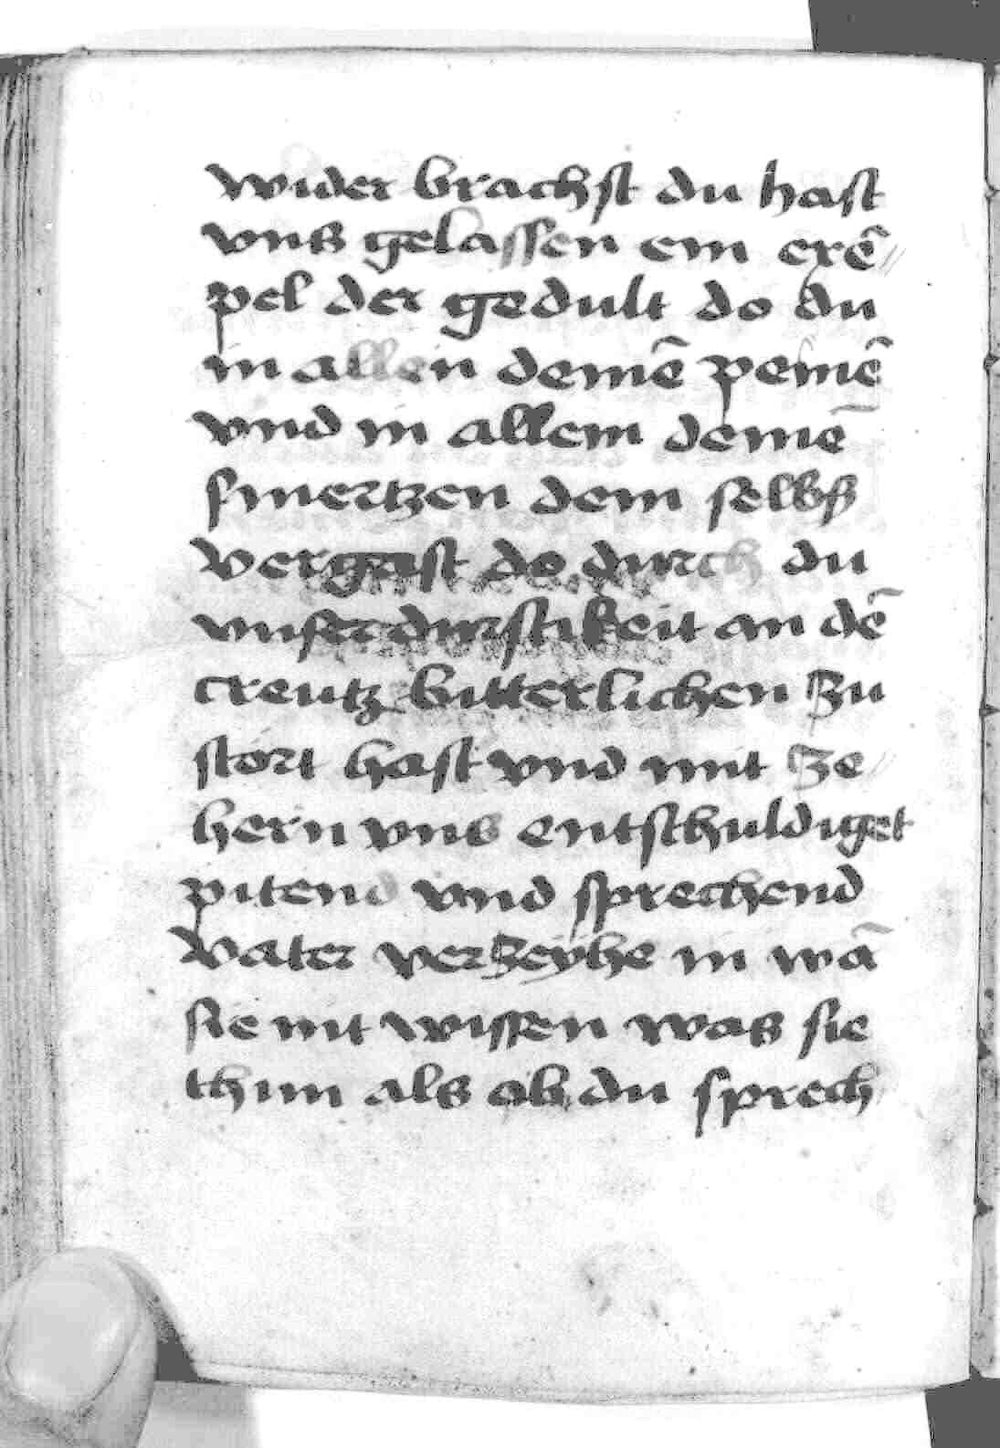 wider brachst du hast
vns gelassen ein exē⸗
pel der gedult do du
in allen deinē peinē
vnd in allem deinē
smertzen dein selbs
vergast do durch du
vnser durstikeit an dē
creutz bitterlichen zu
stört hast vnd mit ze⸗
hern vns entschuldiget
pitend vnd sprechend
vater verzeyhe in wā
sie nit wissen was sie
thun als ob du sprech